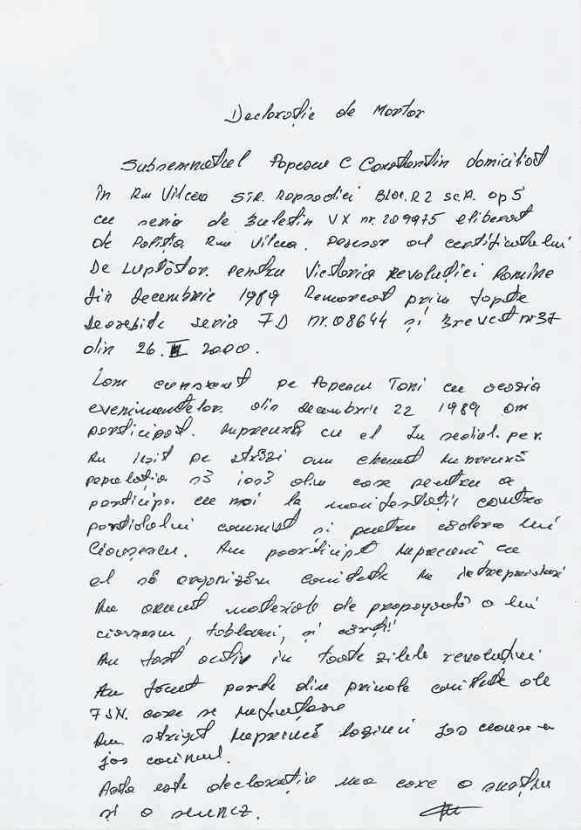 Declarație de Martor
Subsemnatul Popescu C Constantin domiciliat
în Rm Vîlcea STR. Rapsodiei Bloc. R2 sc.A. ap5
cu seria de Buletin VX nr. 209975 eliberat
de Poliția Rm Vîlcea. Posesor al certificatului
De Luptător. pentru Victoria revoluției Romîne
din decembrie 1989 Remarcat prin fapte
deosebite seria FD nr. 08644 și Brevet nr37
din 26. II 2000.
cunoscut pe Popescu Toni cu ocazia
evenimentelor. din decembrie 22 1989 am
participat. împreună cu el
Am ieșit pe străzi am chemat împreună
populația să iasă din case pentru a
participa. cu noi la contra
partidului și pentru lui
Ceaușescu. Am participat împreună cu
el să organizăm comitete în
Am materiale de propagandă a lui
tablouri, și cărți
Am fost activ în toate zilele revoluției
Am făcut parte din primele comitete ale
FSN. care se
Am strigat împreună
jos
Asta este declarația mea care o susțin
și o semnez.